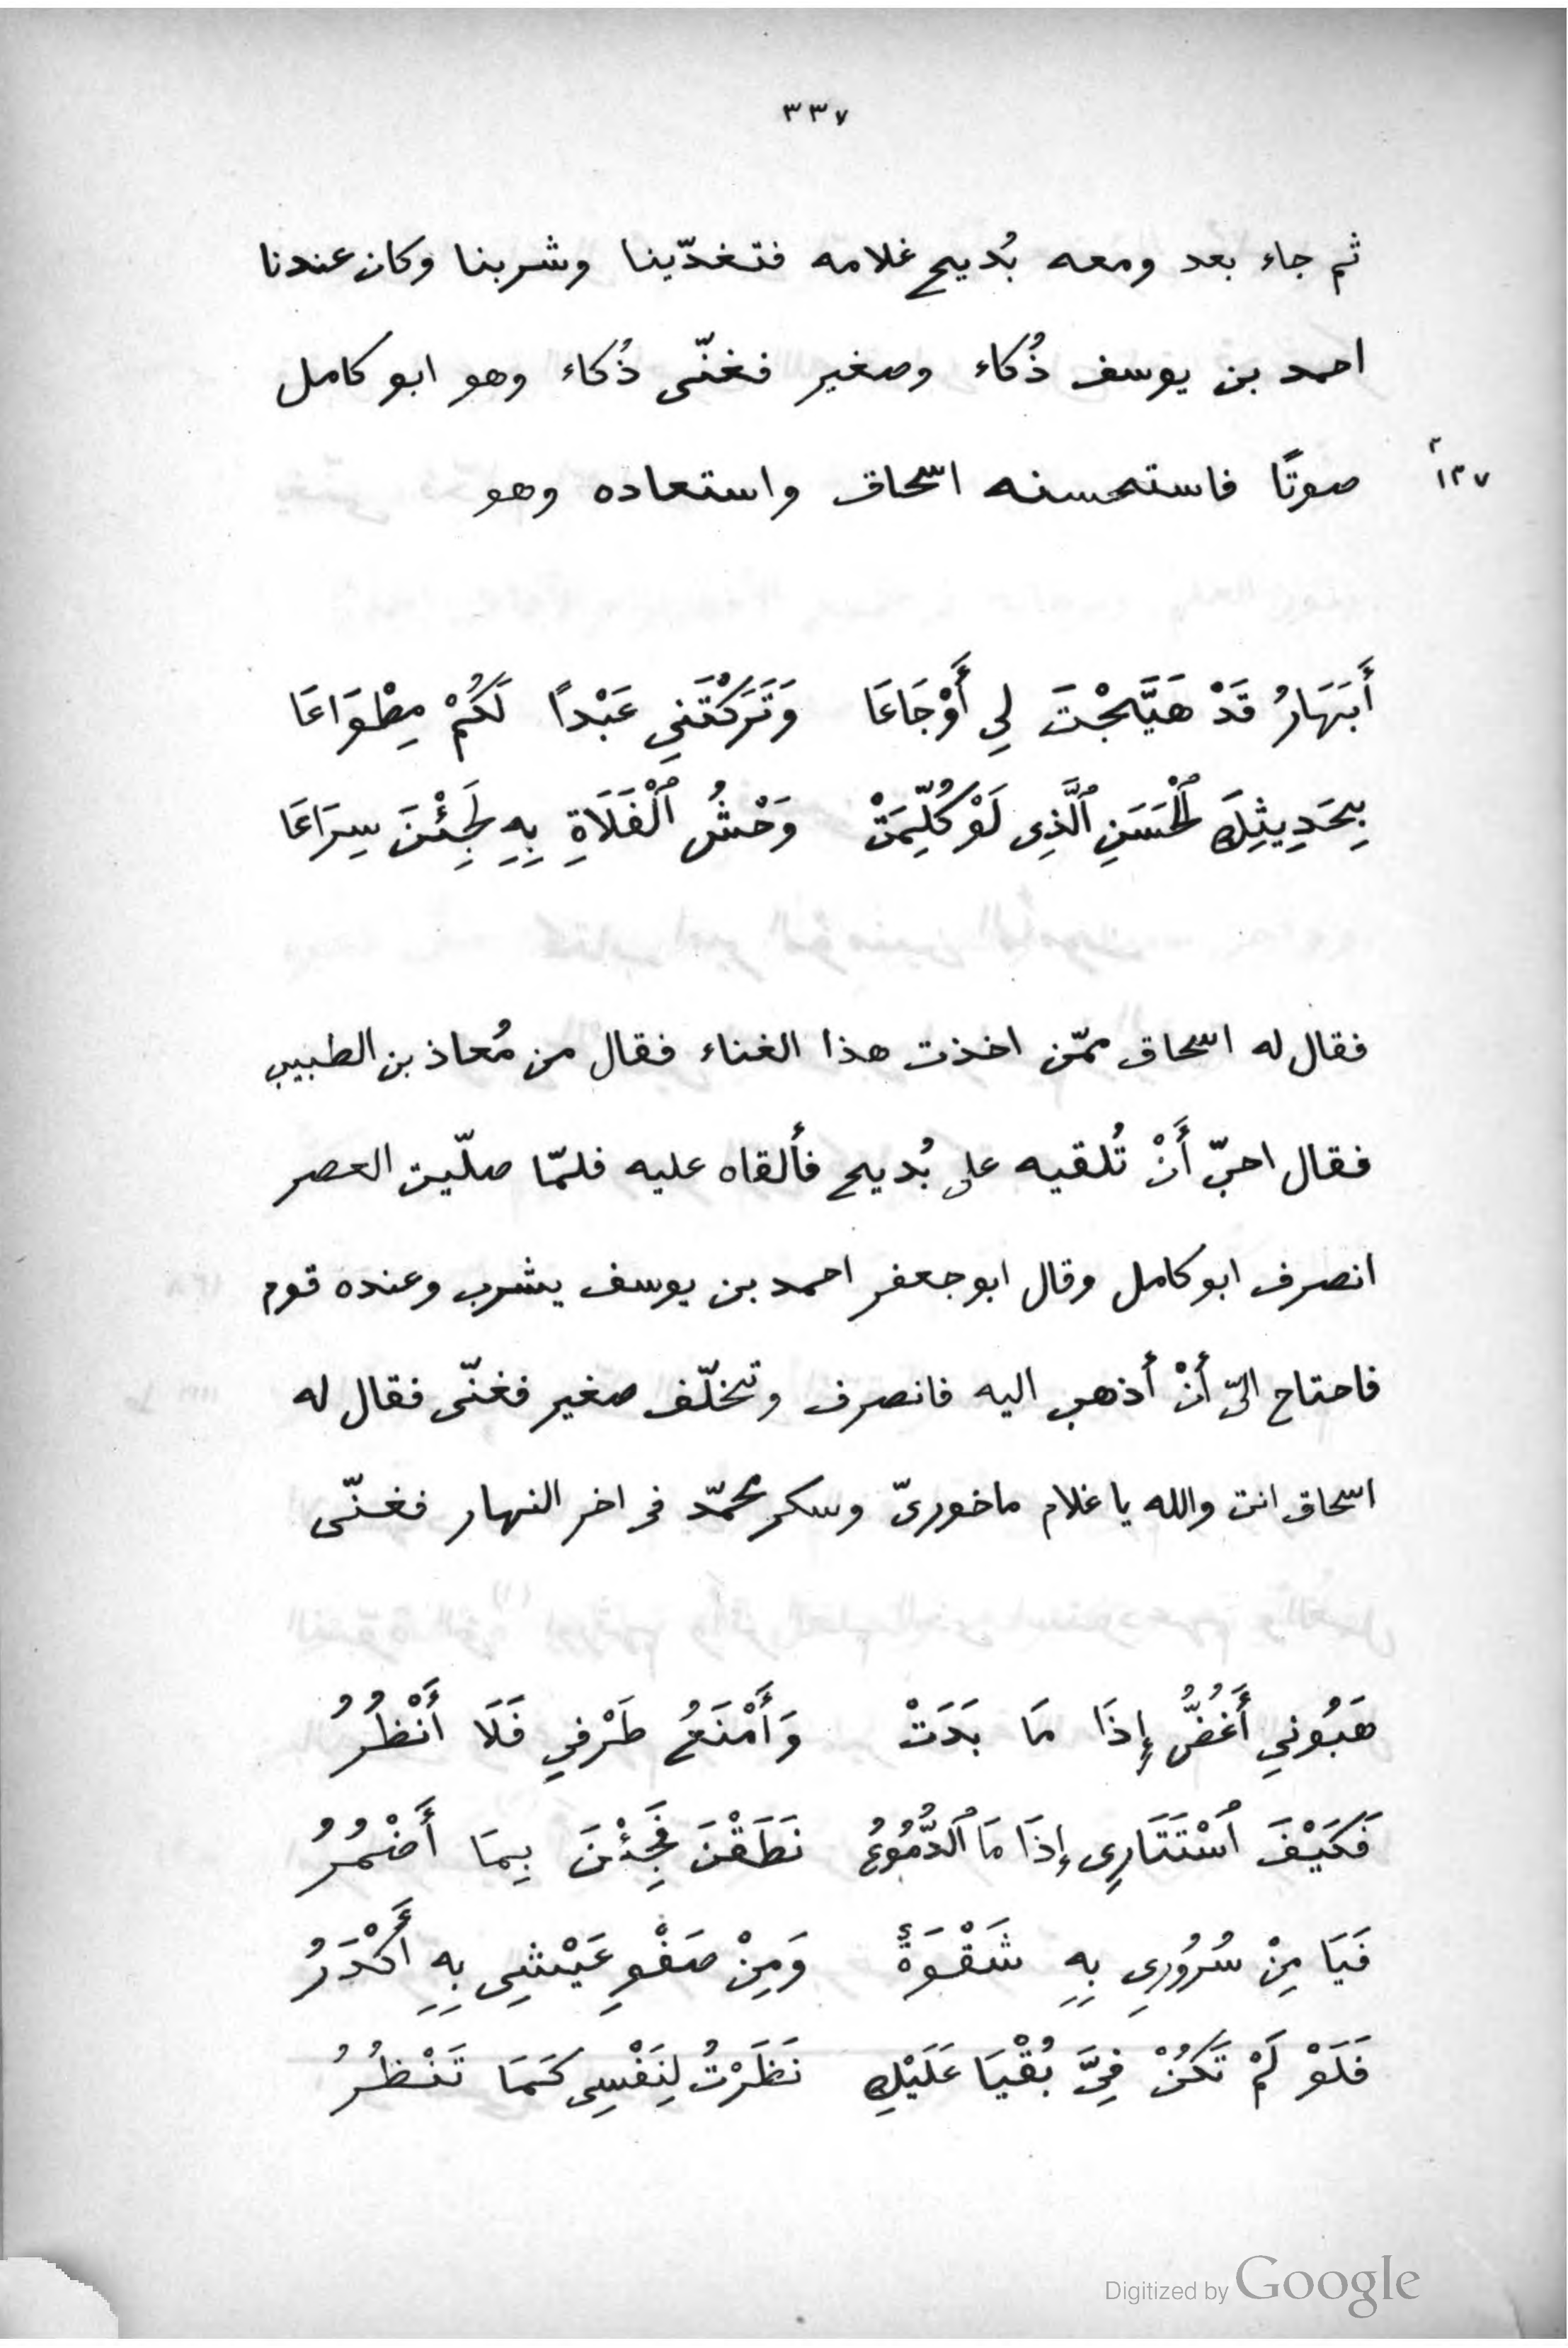 ٣٣٧
ثم جاء بعد ومعه بُديح غلامه فتغدّينا وشربنا وكان عندنا
احمد بن يوسف ذُكاء وصغير فغنّى ذُكاء وهو ابو كامل
صوتًا فاستحسنه اسحاق واستعاده وهو
١٣٧
أَبَهَارُ قَدْ هَيَّجْتَ لِي أَوْجَاعَا وَتَرَكْتَنِي عَبْداً لَكُمْ مِطْوَاعَا
بِحَدِيثِكَ ٱلْحَسَنِ ٱلَّذِى لَوْ كُلِّمَتْ وَحْشُ ٱلْفَلَاةِ بِهِ لَجِئْنَ سِرَاعَا
فقال له اسحاق ممّن اخذت هذا الغناء فقال من مُعاذ بن الطبيب
فقال احبّ أَنْ تُلقيه على بُديح فألقاه عليه فلمّا صلّيت العصر
انصرف ابو كامل وقال ابو جعفر احمد بن يوسف يشرب وعنده قوم
فاحتاج الىّ أنْ أذهب اليه فانصرف وتخلّف صغير فغنّى فقال له
اسحاق انت والله يا غلام ماخورىّ وسكر محمّد فى اخر النهار فغنّى
هَبُوني أَغُضُّ إِذَا مَا بَدَتْ وَأَمْنَعُ طَرْفي فَلَا أَنْظُرُ
فَكَيْفَ ٱسْتَتَارِى إِذَا مَا ٱلدُّمُوعُ نَطَقْنَ فَجِئْنَ بِمَا أَضْمُرُ
فَيَا مِنْ سُرُورِى بِهِ شَقْوَةٌ وَمِنْ صَفْوِ عَيْشِى بِهِ أَكْدَرُ
فَلَوْ لَمْ تَكُنْ فِىَّ بُقْيَا عَلَيْكِ نَظَرْتُ لِنَفْسِى كَمَا تَنْظُرُ
Digitized by Google